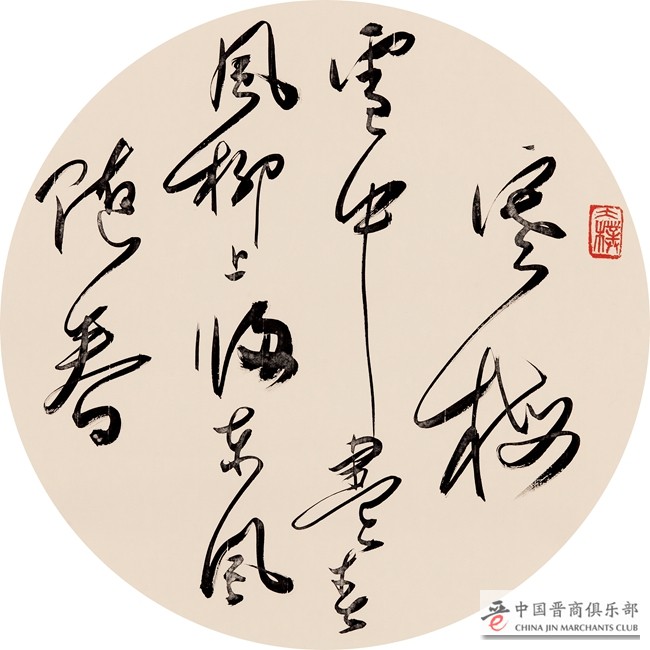 寒梅
雪中盡春
風柳上歸东风
隨春
中国晋商俱乐部
CHINA JIN MARCHANTS CLUB